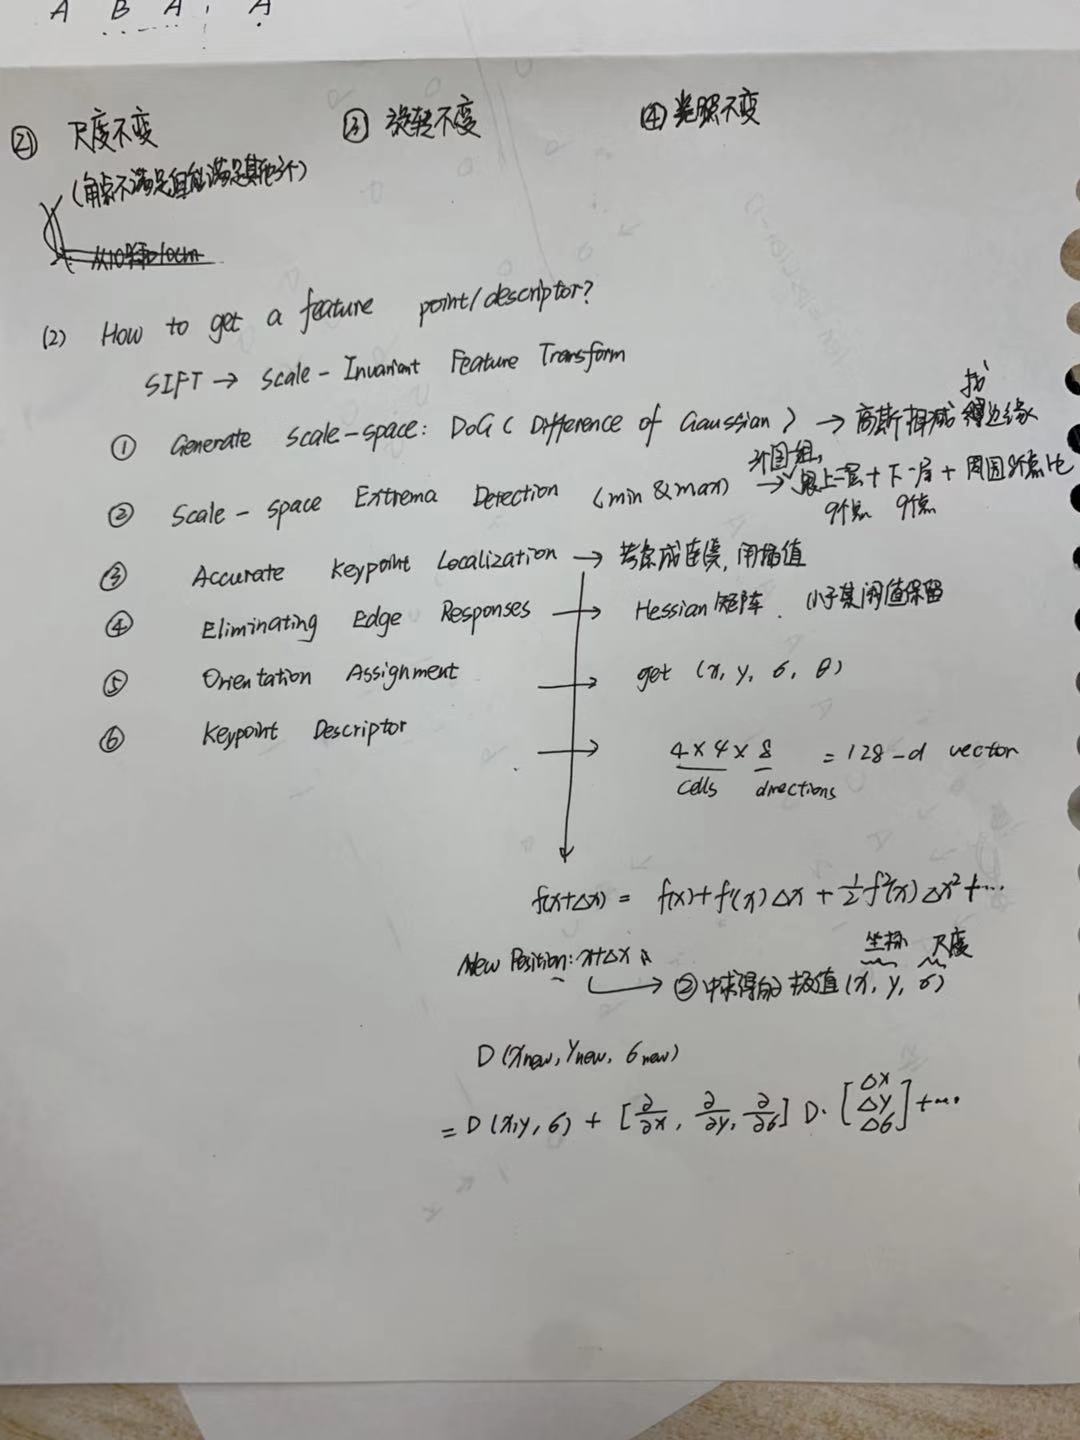 A B A A
② 尺度不变 ③ 旋转不变 ④ 光照不变
(角点不满足但能满足其他3个)
(2) How to get a feature point/descriptor?
SIFT → Scale-Invariant Feature Transform
① Generate scale-space: DoG (Difference of Gaussian) → 高斯相减 找边缘
② Scale-space Extrema Detection (min & max) → 3个图一组, 跟上一层+下一层+周围8个点比
9个点 9个点
③ Accurate Keypoint Localization → 考虑成连续, 用插值
④ Eliminating Edge Responses → Hessian矩阵. 小于某阈值保留
⑤ Orientation Assignment → get (x, y, σ, θ)
⑥ Keypoint Descriptor → 4×4×8 = 128-d vector
cells directions
f(x+Δx) = f(x) + f'(x)Δx + ½f²(x)Δx² + ...
坐标 尺度
New Position: x+Δx
→ ②中求得的极值 (x, y, σ)
D(xnew, ynew, σnew)
= D(x,y,σ) + [∂/∂x, ∂/∂y, ∂/∂σ] D · [Δx Δy Δσ] + ...